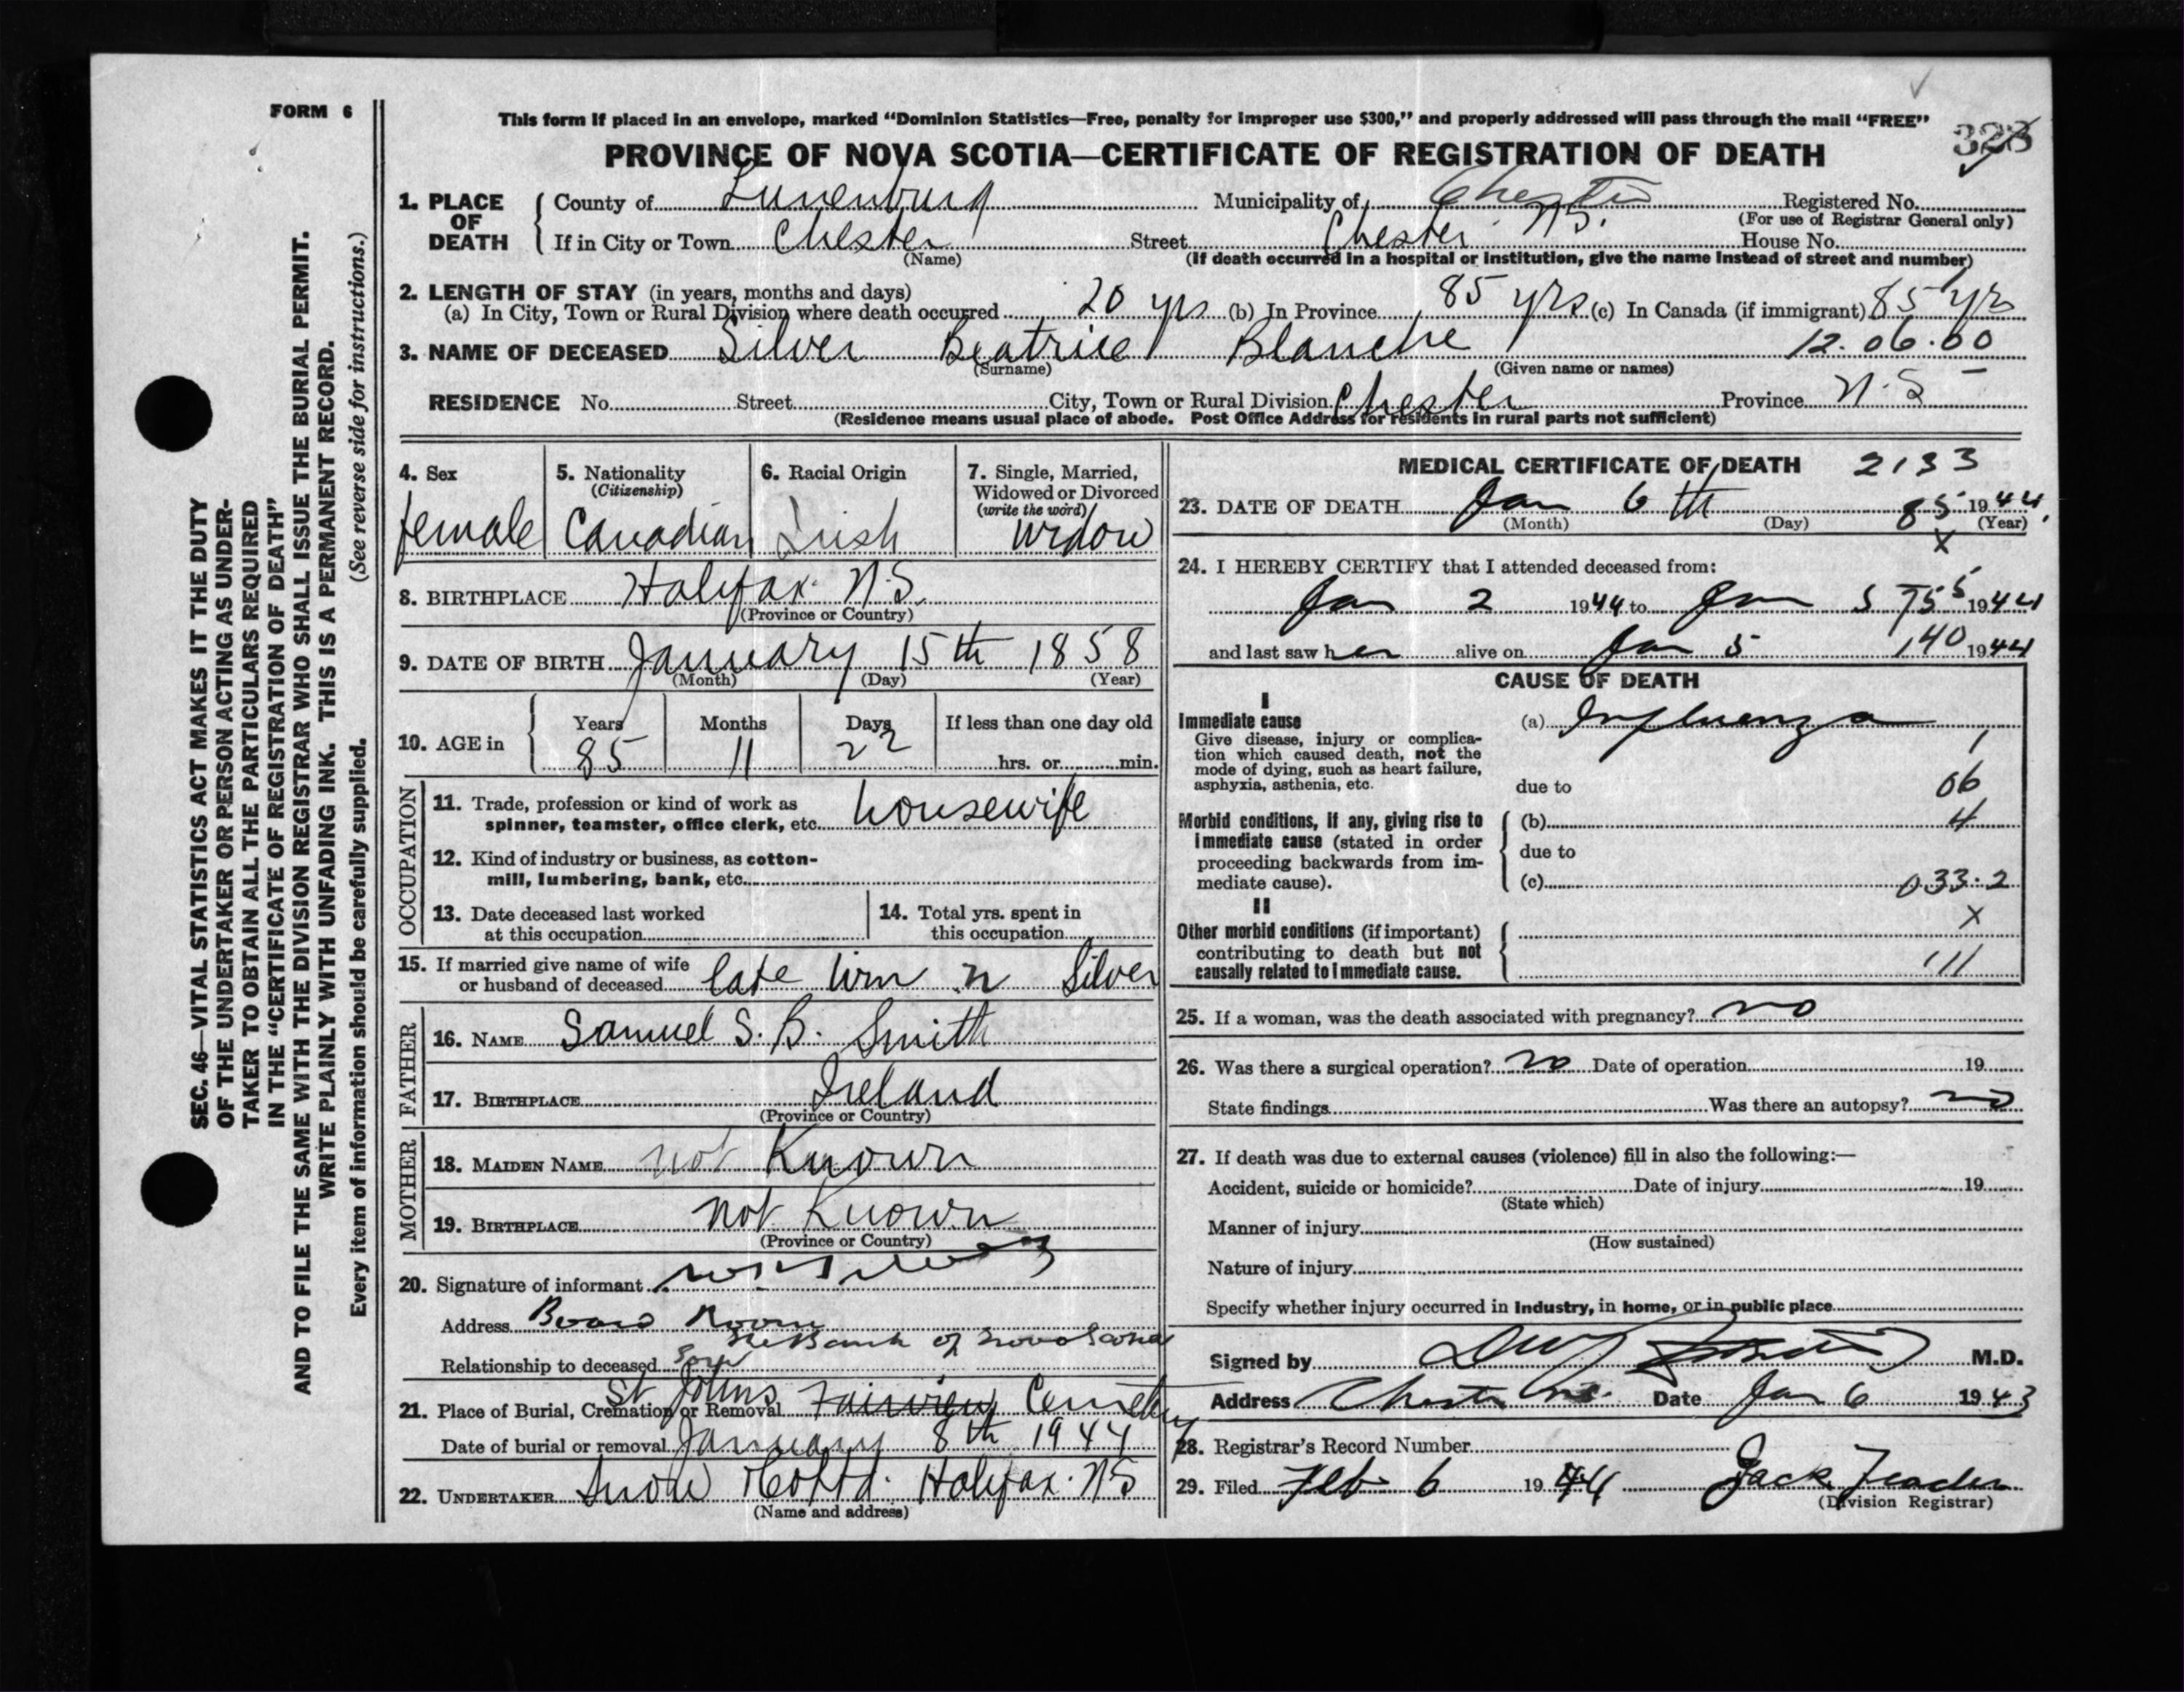 FORM 6
This form if placed in an envelope, marked "Dominion Statistics—Free, penalty for improper use $300," and properly addressed will pass through the mail "FREE"
PROVINCE OF NOVA SCOTIA—CERTIFICATE OF REGISTRATION OF DEATH
328
SEC. 46—VITAL STATISTICS ACT MAKES IT THE DUTY
OF THE UNDERTAKER OR PERSON ACTING AS UNDER-
TAKER TO OBTAIN ALL THE PARTICULARS REQUIRED
IN THE "CERTIFICATE OF REGISTRATION OF DEATH"
AND TO FILE THE SAME WITH THE DIVISION REGISTRAR WHO SHALL ISSUE THE BURIAL PERMIT.
WRITE PLAINLY WITH UNFADING INK. THIS IS A PERMANENT RECORD.
Every item of information should be carefully supplied. (See reverse side for instructions.)
1. PLACE OF DEATH
County of Lunenburg Municipality of Chester Registered No.
(For use of Registrar General only)
If in City or Town Chester Street Chester N.S. House No.
(Name) (If death occurred in a hospital or institution, give the name instead of street and number)
2. LENGTH OF STAY (in years, months and days)
(a) In City, Town or Rural Division where death occurred 20 yrs (b) In Province 85 yrs (c) In Canada (if immigrant) 85 yrs
3. NAME OF DECEASED Silver Beatrice Blanche 12.06.60
(Surname) (Given name or names)
RESIDENCE No. Street City, Town or Rural Division Chester Province N.S
(Residence means usual place of abode. Post Office Address for residents in rural parts not sufficient)
4. Sex
female
5. Nationality
(Citizenship)
Canadian
6. Racial Origin
Irish
7. Single, Married,
Widowed or Divorced
(write the word)
widow
8. BIRTHPLACE Halifax N.S.
(Province or Country)
9. DATE OF BIRTH January 15th 1858
(Month) (Day) (Year)
10. AGE in
Years Months Days If less than one day old
85 11 22 hrs. or min.
OCCUPATION
11. Trade, profession or kind of work as
spinner, teamster, office clerk, etc. housewife
12. Kind of industry or business, as cotton-
mill, lumbering, bank, etc.
13. Date deceased last worked
at this occupation
14. Total yrs. spent in
this occupation
15. If married give name of wife
or husband of deceased late Wm n Silver
FATHER
16. NAME Samuel S. B. Smith
17. BIRTHPLACE Ireland
(Province or Country)
MOTHER
18. MAIDEN NAME not Known
19. BIRTHPLACE not Known
(Province or Country)
20. Signature of informant
Address Board Room
The Bank of Nova Scotia
Relationship to deceased Son
St Johns
21. Place of Burial, Cremation or Removal Fairview Cemetery
Date of burial or removal January 8th 1944
22. UNDERTAKER Snow Co Ltd. Halifax N S
(Name and address)
MEDICAL CERTIFICATE OF DEATH 2133
23. DATE OF DEATH Jan 6 th 85 1944
(Month) (Day) (Year)
x
24. I HEREBY CERTIFY that I attended deceased from:
Jan 2 1944 to Jan 5 755 1944
and last saw her alive on Jan 5 140 1944
CAUSE OF DEATH
I
Immediate cause
Give disease, injury or complica-
tion which caused death, not the
mode of dying, such as heart failure,
asphyxia, asthenia, etc.
(a) Influenza
1
due to 06
Morbid conditions, if any, giving rise to
immediate cause (stated in order
proceeding backwards from im-
mediate cause).
(b) 4
due to
(c) 033.2
II
Other morbid conditions (if important)
contributing to death but not
causally related to immediate cause.
x
111
25. If a woman, was the death associated with pregnancy? no
26. Was there a surgical operation? no Date of operation 19
State findings Was there an autopsy? no
27. If death was due to external causes (violence) fill in also the following:—
Accident, suicide or homicide? Date of injury 19
(State which)
Manner of injury
(How sustained)
Nature of injury
Specify whether injury occurred in industry, in home, or in public place
Signed by M.D.
Address Chester N.S. Date Jan 6 1943
28. Registrar's Record Number
29. Filed Feb 6 1944 Jack
(Division Registrar)